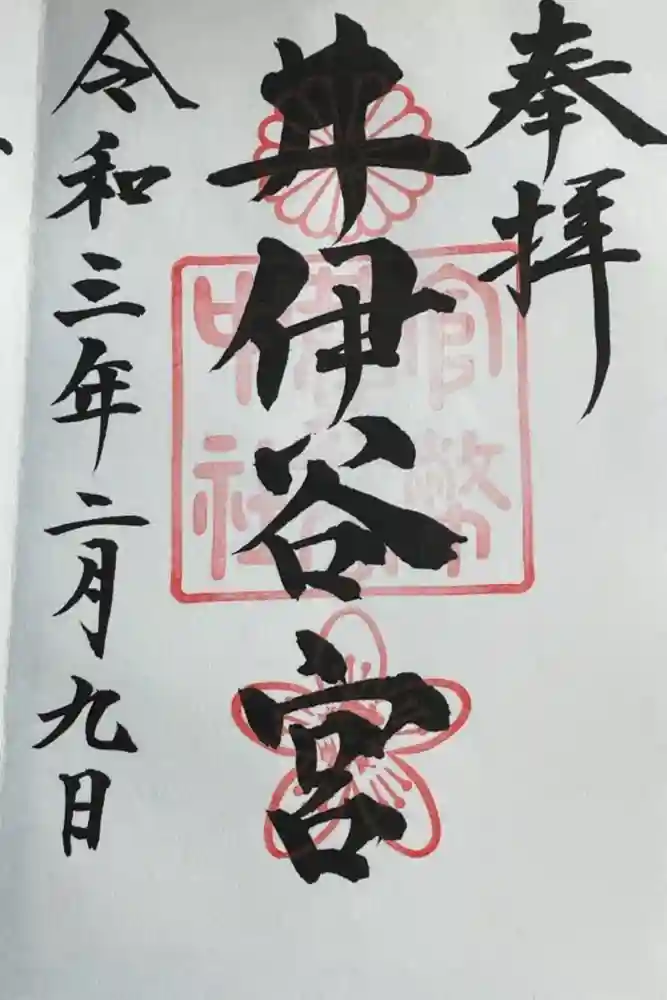 奉拝
井伊谷宮
令和三年二月九日
官幣
中社